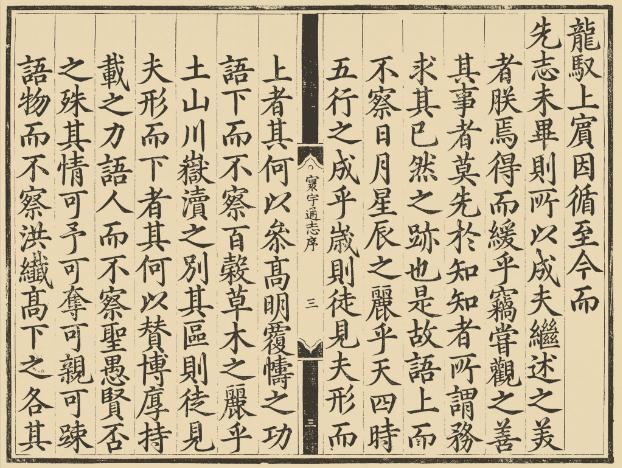 龍馭上賓因循至今而
先志未畢則所以成夫繼述之美
者朕焉得而緩乎竊嘗觀之善
其事者莫先於知知者所謂務
求其已然之跡也是故語上而
不察日月星辰之麗乎天四時
五行之成乎歲則徒見夫形而
寰宇通志序
三
三
上者其何以參高明覆幬之功
語下而不察百穀草木之麗乎
土山川嶽瀆之別其區則徒見
夫形而下者其何以賛博厚持
載之力語人而不察聖愚賢否
之殊其情可予可奪可親可踈
語物而不察洪纖高下之各其